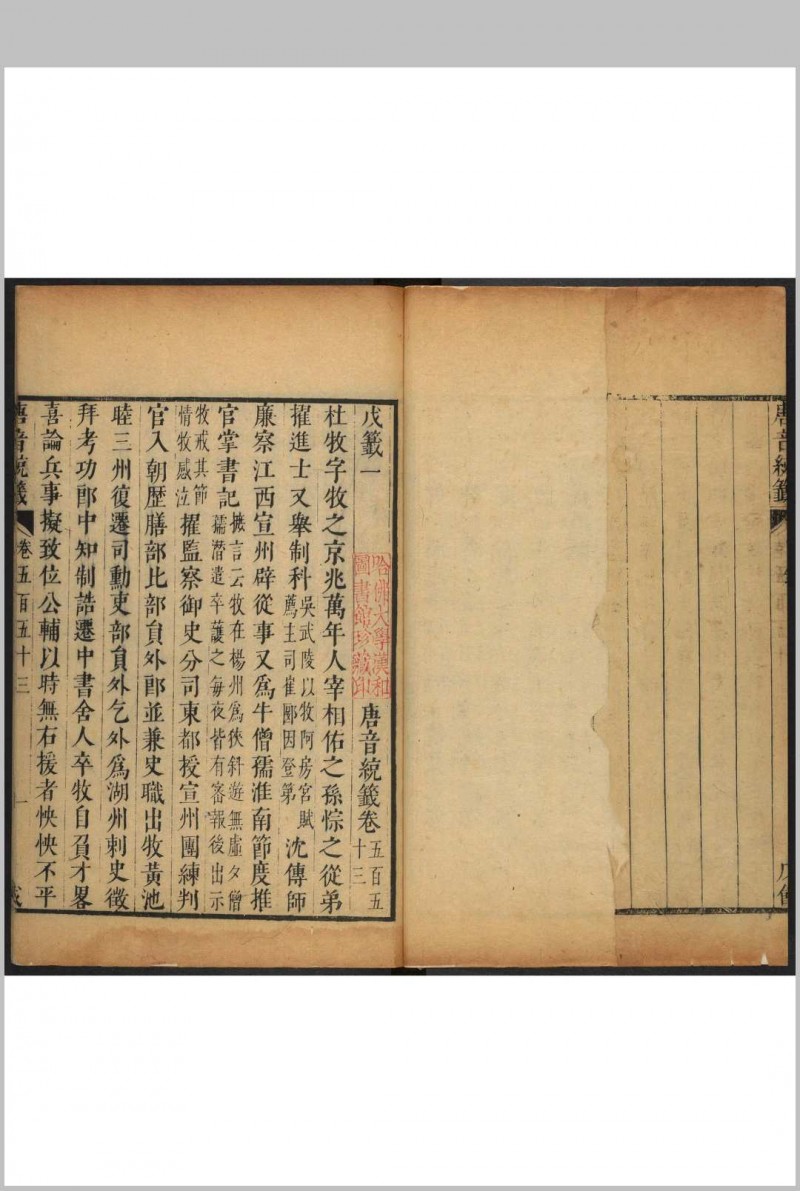 唐音統籤
戊籤一 唐音統籤卷五百五十三
哈佛大學漢和
圖書館珍藏印
杜牧字牧之京兆萬年人宰相佑之孫悰之從弟
擢進士又舉制科吳武陵以牧阿房宮賦薦主司崔郾因登第沈傳師
廉察江西宣州辟從事又爲牛僧孺淮南節度推
官掌書記摭言云牧在楊州爲狹斜遊無虛夕僧孺潛遣卒護之每夜皆有審報後出示
牧戒其節情牧感泣擢監察御史分司東都授宣州團練判
官入朝歴膳部比部員外郎並兼史職出牧黃池
睦三州復遷司勳吏部員外乞外爲湖州刺史徵
拜考功郎中知制誥遷中書舍人卒牧自負才畧
喜論兵事擬致位公輔以時無右援者怏怏不平
唐音統籤 卷五百五十三 一